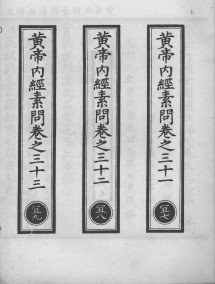 黃帝內經素問卷之三十一
宜七
黃帝內經素問卷之三十二
宜八
黃帝內經素問卷之三十三
宜九